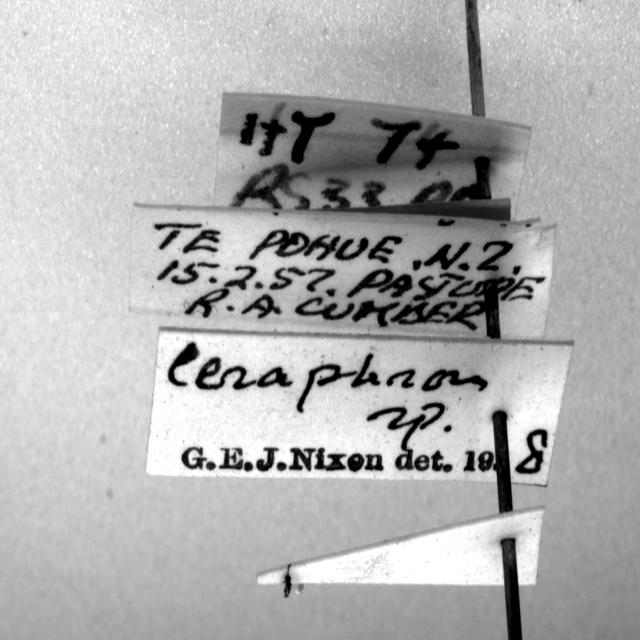 HT T4
TE POHUE. N.Z.
15.2.57. PASTURE
R.A. CUMBER
Ceraphron
sp.
G.E.J.Nixon det. 19 8